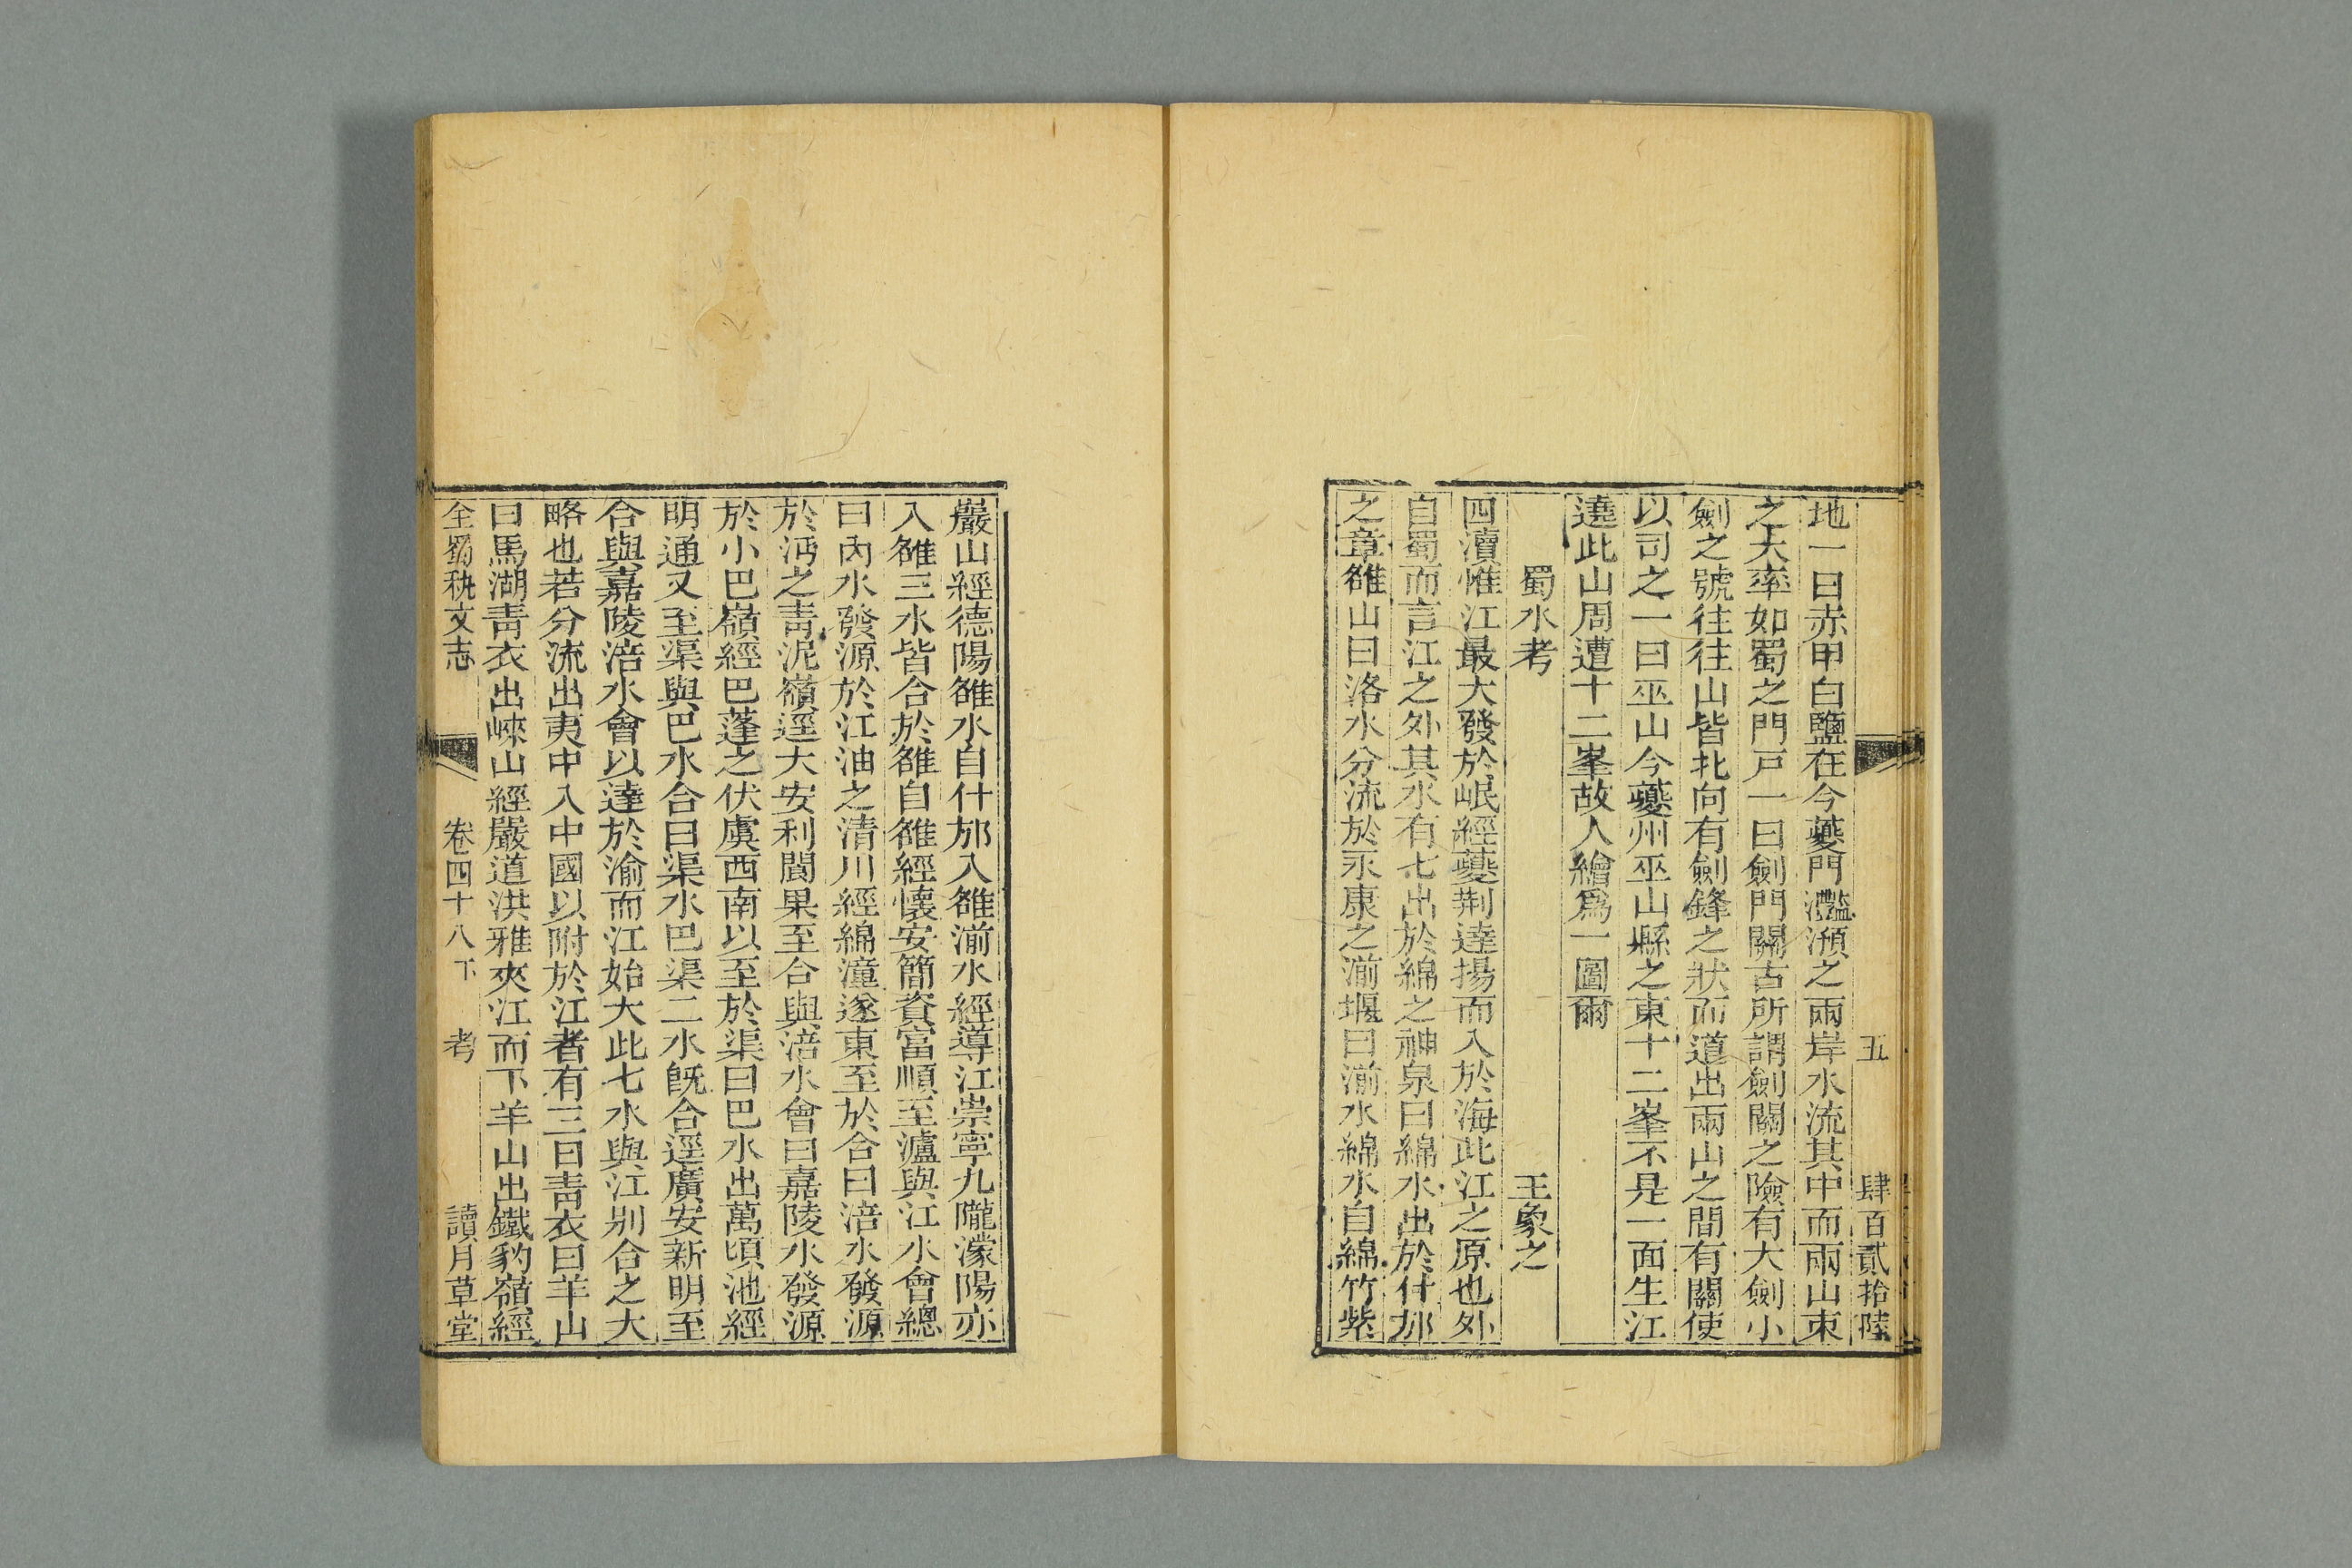 五　肆百貳拾陸
地一曰赤甲白鹽在今夔門灔澦之兩岸水流其中而兩山束
之大率如蜀之門戸一曰劍門關古所謂劍關之險有大劍小
劍之號往往山皆北向有劍鋒之狀而道出兩山之間有關使
以司之一曰巫山今夔州巫山縣之東十二峯不是一面生江
遶此山周遭十二峯故人繪爲一圖爾
蜀水考　王象之
四瀆惟江最大發於岷經夔荆達揚而入於海此江之原也外
自蜀而言江之外其水有七出於綿之神泉曰綿水出於什邡
之章雒山曰洛水分流於永康之湔堰曰湔水綿水自綿竹紫
巖山經德陽雒水自什邡入雒湔水經導江崇寧九隴濛陽亦
入雒三水皆合於雒自雒經懷安簡資富順至瀘與江水會總
曰內水發源於江油之清川經綿潼遂東至於合曰涪水發源
於沔之青泥嶺逕大安利閬果至合與涪水會曰嘉陵水發源
於小巴嶺經巴蓬之伏虞西南以至於渠曰巴水出萬頃池經
明通又至渠與巴水合曰渠水巴渠二水旣合逕廣安新明至
合與嘉陵涪水會以達於渝而江始大此七水與江別合之大
略也若分流出夷中入中國以附於江者有三曰靑衣曰羊山
曰馬湖靑衣出崍山經嚴道洪雅夾江而下羊山出鐵豹嶺經
全蜀秇文志　卷四十八下　考　讀月草堂